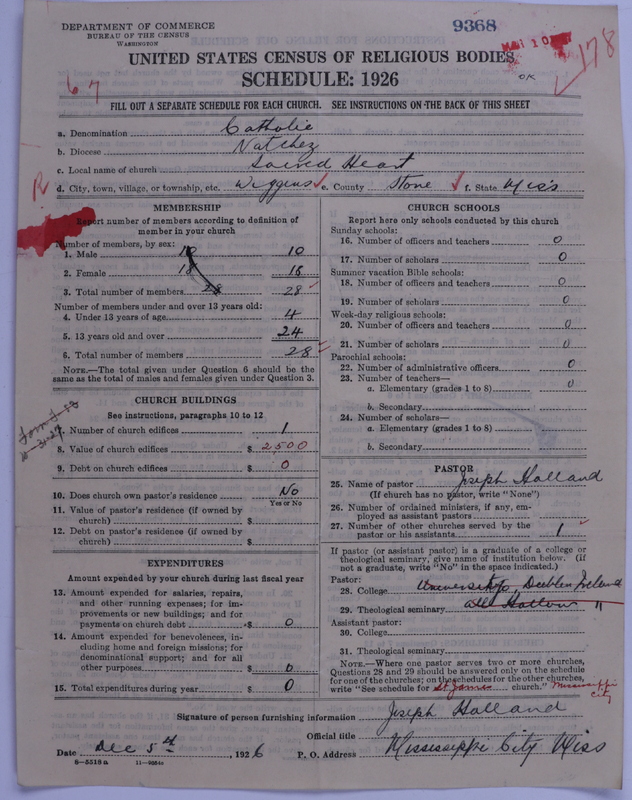 DEPARTMENT OF COMMERCE
BUREAU OF THE CENSUS
WASHINGTON
9368
178
UNITED STATES CENSUS OF RELIGIOUS BODIES
SCHEDULE: 1926
OK
67
FILL OUT A SEPARATE SCHEDULE FOR EACH CHURCH. SEE INSTRUCTIONS ON THE BACK OF THIS SHEET
a. Denomination Catholic
b. Diocese Natchez
c. Local name of church Sacred Heart
R
d. City, town, village, or township, etc. Wiggins e. County Stone f. State Miss
MEMBERSHIP
Report number of members according to definition of
member in your church
Number of members, by sex:
1. Male 10 10
2. Female 18 18
3. Total number of members 28 28
Number of members under and over 13 years old:
4. Under 13 years of age 4
5. 13 years old and over 24
6. Total number of members 28
NOTE.—The total given under Question 6 should be
same as the total of males and females given under Question 3.
CHURCH BUILDINGS
See instructions, paragraphs 10 to 12
7. Number of church edifices 1
8. Value of church edifices $ 2500
9. Debt on church edifices $ 0
10. Does church own pastor's residence No
Yes or No
11. Value of pastor's residence (if owned by
church) $
12. Debt on pastor's residence (if owned by
church) $
EXPENDITURES
Amount expended by your church during last fiscal year
13. Amount expended for salaries, repairs,
and other running expenses; for im-
provements or new buildings; and for
payments on church debt $ 0
14. Amount expended for benevolences, in-
cluding home and foreign missions; for
denominational support; and for all
other purposes $ 0
15. Total expenditures during year $ 0
CHURCH SCHOOLS
Report here only schools conducted by this church
Sunday schools:
16. Number of officers and teachers 0
17. Number of scholars 0
Summer vacation Bible schools:
18. Number of officers and teachers 0
19. Number of scholars 0
Week-day religious schools:
20. Number of officers and teachers 0
21. Number of scholars 0
Parochial schools:
22. Number of administrative officers 0
23. Number of teachers—
a. Elementary (grades 1 to 8) 0
b. Secondary
24. Number of scholars—
a. Elementary (grades 1 to 8)
b. Secondary
PASTOR
25. Name of pastor Joseph Holland
(If church has no pastor, write "None")
26. Number of ordained ministers, if any, em-
ployed as assistant pastors
27. Number of other churches served by the
pastor or his assistants 1
If pastor (or assistant pastor) is a graduate of a college or
theological seminary, give name of institution below. (If
not a graduate, write "No" in the space indicated.)
Pastor:
28. College University, Deublin Ireland
29. Theological seminary All Hallow "
Assistant pastor:
30. College
31. Theological seminary
NOTE.—Where one pastor serves two or more churches,
Questions 28 and 29 should be answered only on the schedule
for one of the churches; on the schedules for the other churches,
write "See schedule for St James church." Mississippi
City
Signature of person furnishing information Joseph Holland
Official title
Date Dec 5th, 1926 P. O. Address Mississippi City Miss
8—5518a